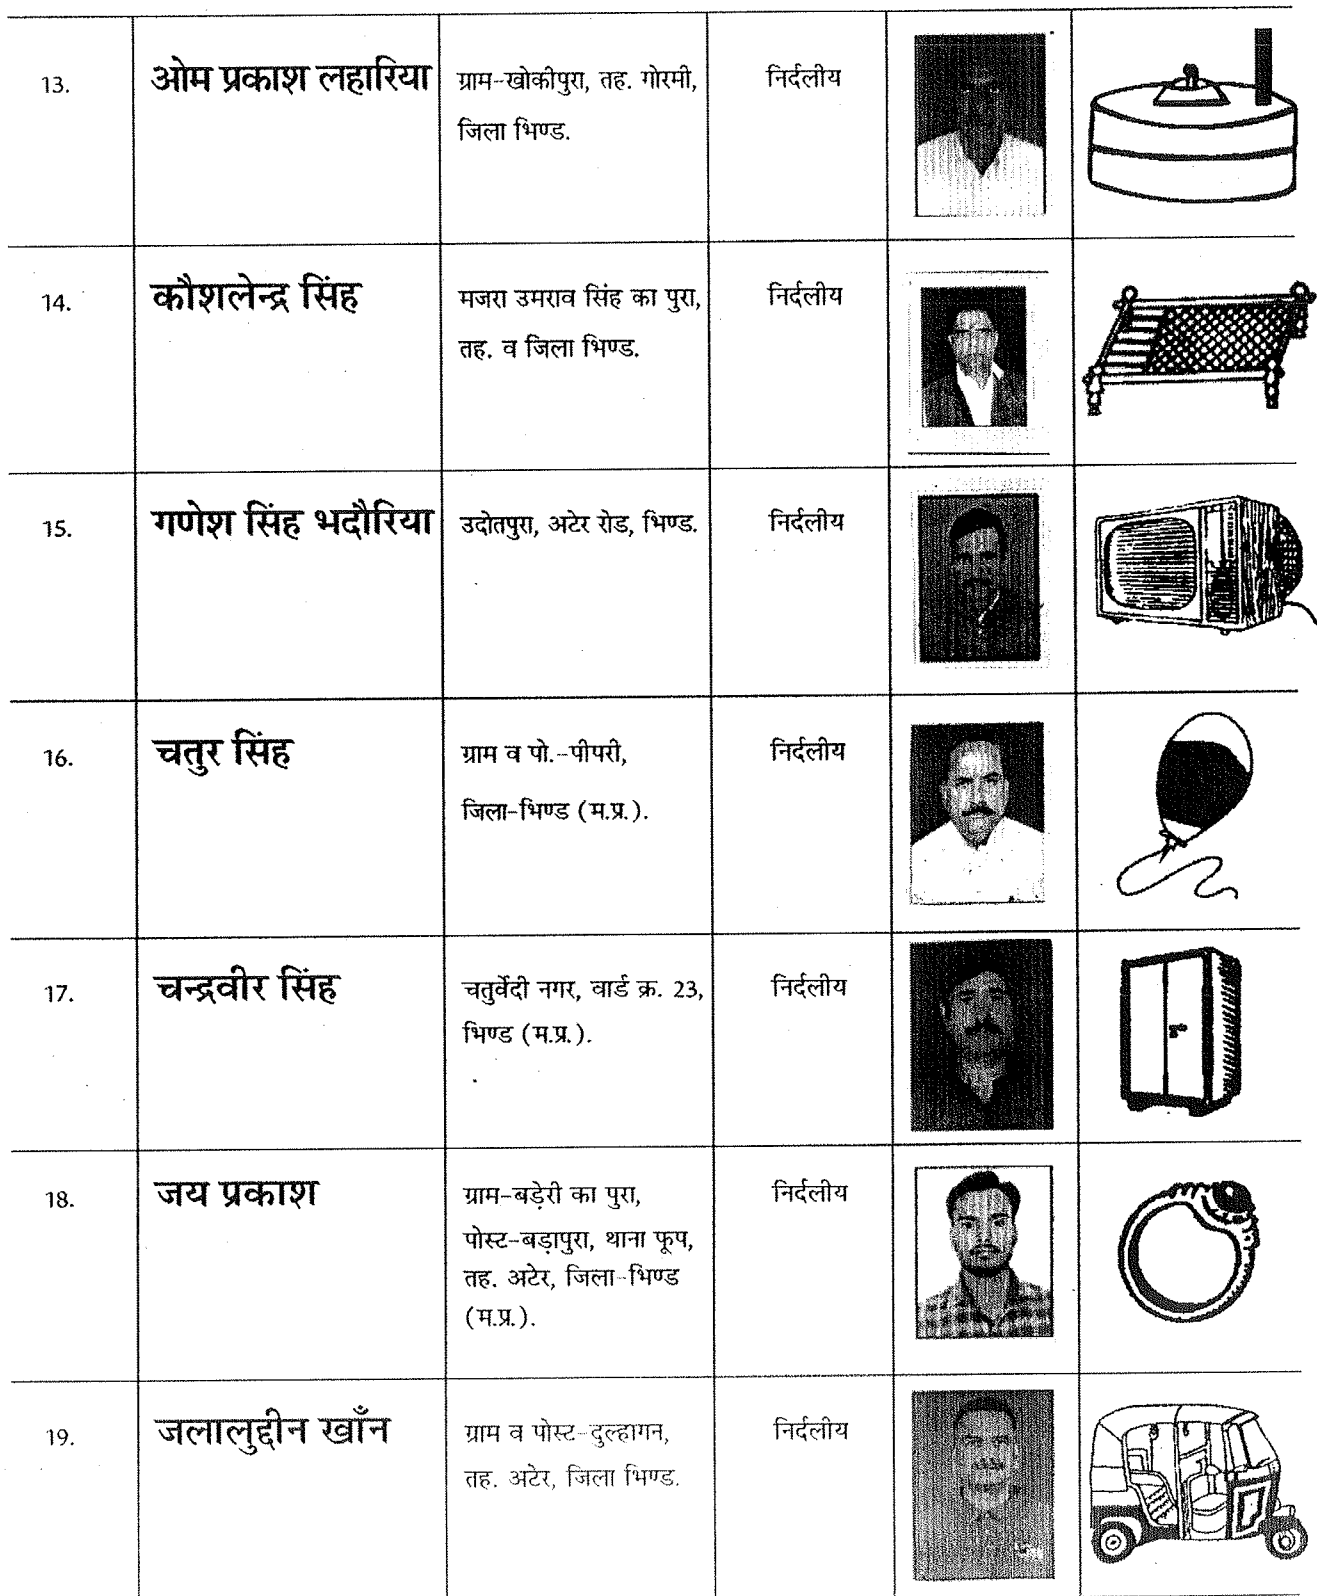 13.
ओम प्रकाश लहारिया
ग्राम-खोकीपुरा, तह. गोरमी,
जिला भिण्ड.
निर्दलीय
14.
कौशलेन्द्र सिंह
मजरा उमराव सिंह का पुरा,
तह. व जिला भिण्ड.
निर्दलीय
15.
गणेश सिंह भदौरिया
उदोतपुरा, अटेर रोड, भिण्ड.
निर्दलीय
16.
चतुर सिंह
ग्राम व पो.-पीपरी,
जिला-भिण्ड (म.प्र.).
निर्दलीय
17.
चन्द्रवीर सिंह
चतुर्वेदी नगर, वार्ड क्र. 23,
भिण्ड (म.प्र.).
निर्दलीय
18.
जय प्रकाश
ग्राम-बड़ेरी का पुरा,
पोस्ट-बड़ापुरा, थाना फूप,
तह. अटेर, जिला-भिण्ड
(म.प्र.).
निर्दलीय
19.
जलालुद्दीन खाँन
ग्राम व पोस्ट-दुल्हागन,
तह. अटेर, जिला भिण्ड.
निर्दलीय